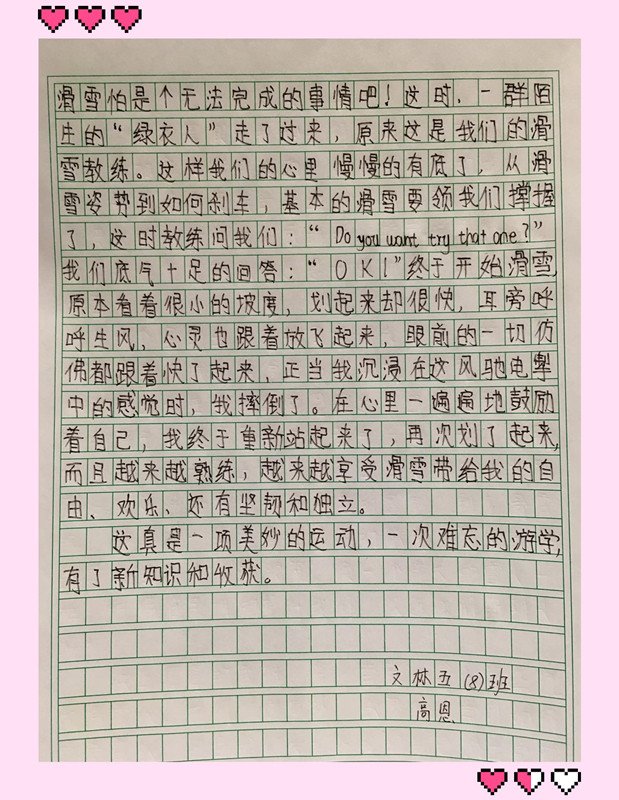 滑雪怕是个无法完成的事情吧！这时，一群陌
生的“绿衣人”走了过来，原来这是我们的滑
雪教练。这样我们的心里慢慢的有底了，从滑
雪姿势到如何刹车，基本的滑雪要领我们撑握
了，这时教练问我们：“Do you want try that one?”
我们底气十足的回答：“OK!”终于开始滑雪，
原本看着很小的坡度，划起来却很快，耳旁呼
呼生风，心灵也跟着放飞起来，眼前的一切仿
佛都跟着快了起来，正当我沉浸在这风驰电掣
中的感觉时，我摔倒了。在心里一遍遍地鼓励
着自己，我终于重新站起来了，再次划了起来，
而且越来越熟练，越来越享受滑雪带给我的自
由、欢乐、还有坚韧和独立。
这真是一项美妙的运动，一次难忘的游学，
有了新知识和收获。
文林五（8）班
高恩